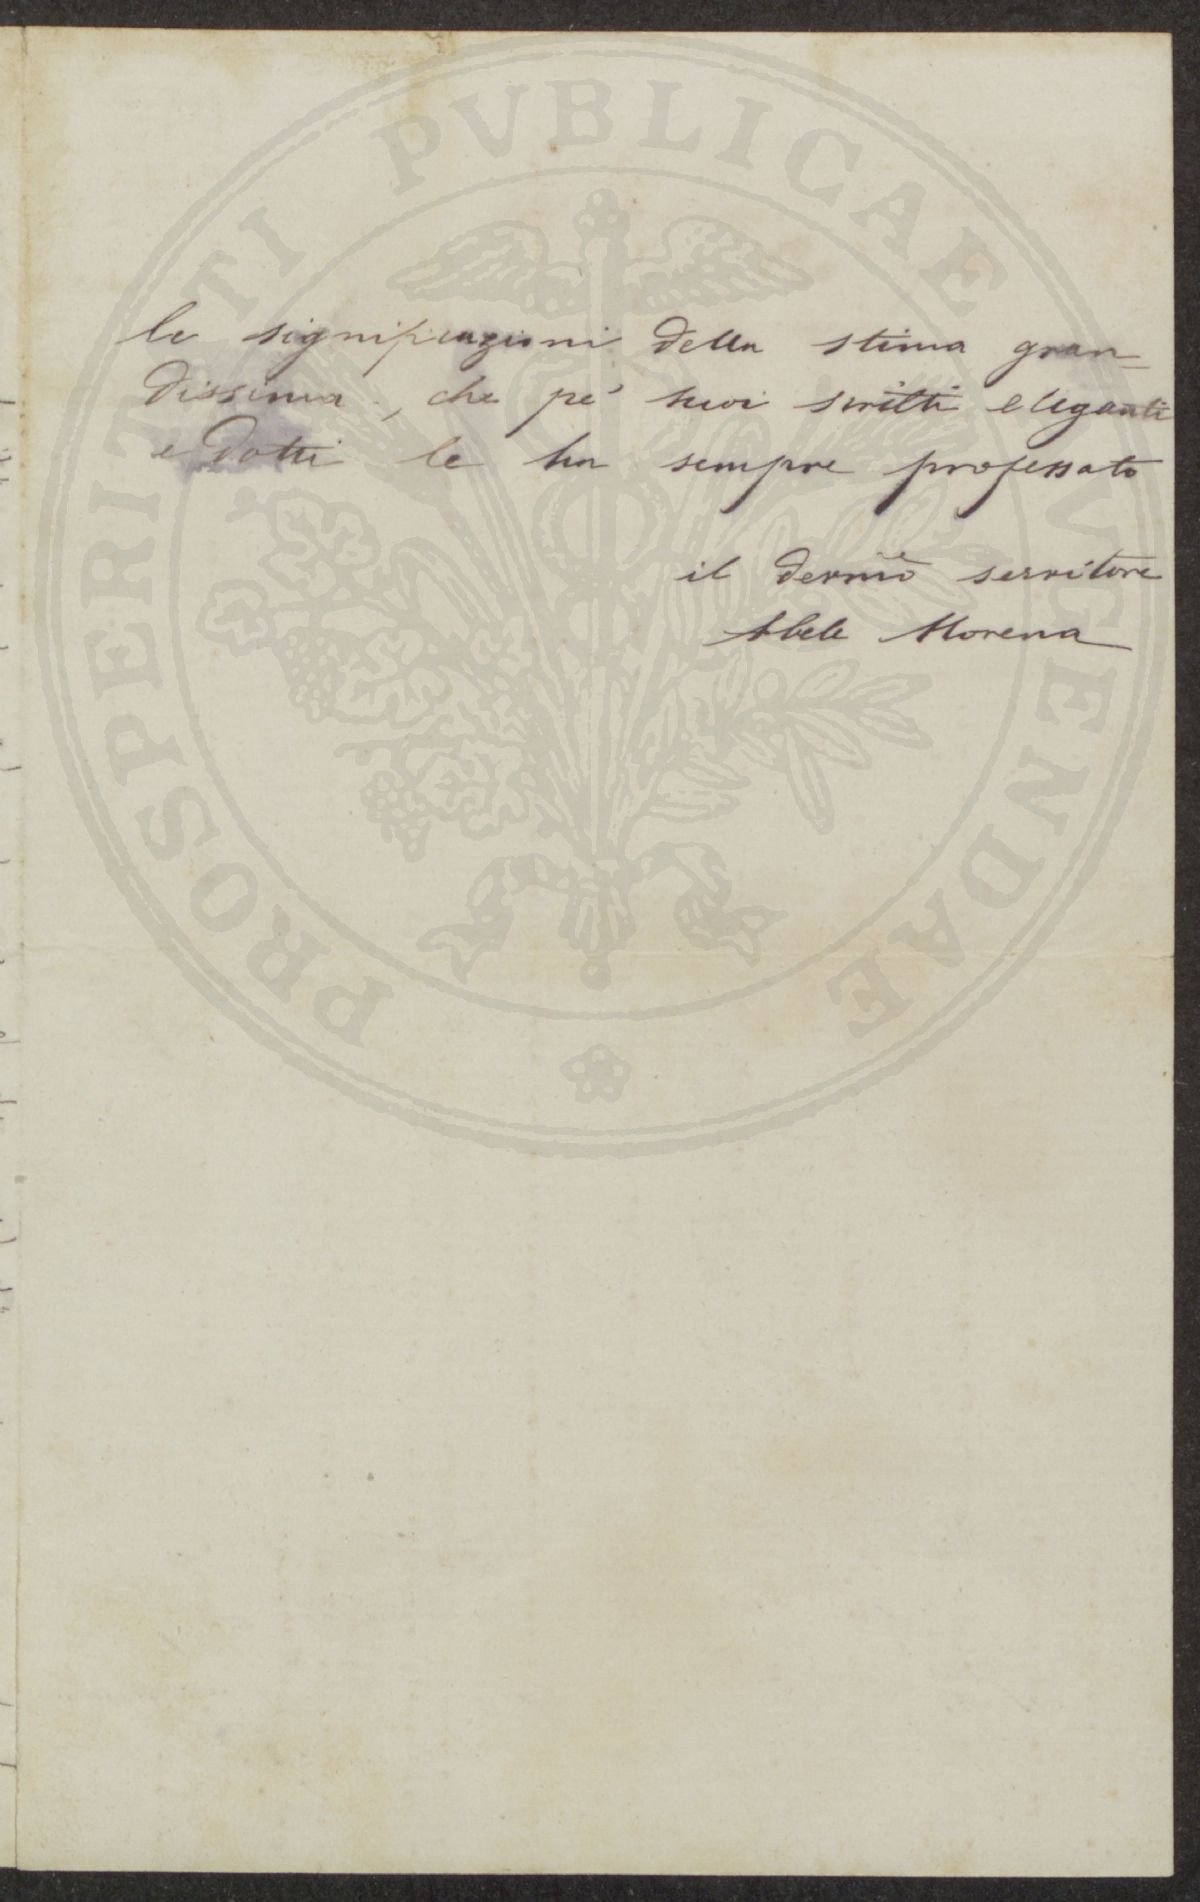 le significazioni della stima gran=
dissima, che pe' suoi scritti eleganti
e dotti le ha sempre professato
il devmo servitore
Abele Morena
PROSPERITATI PVBLICAE AVGENDAE